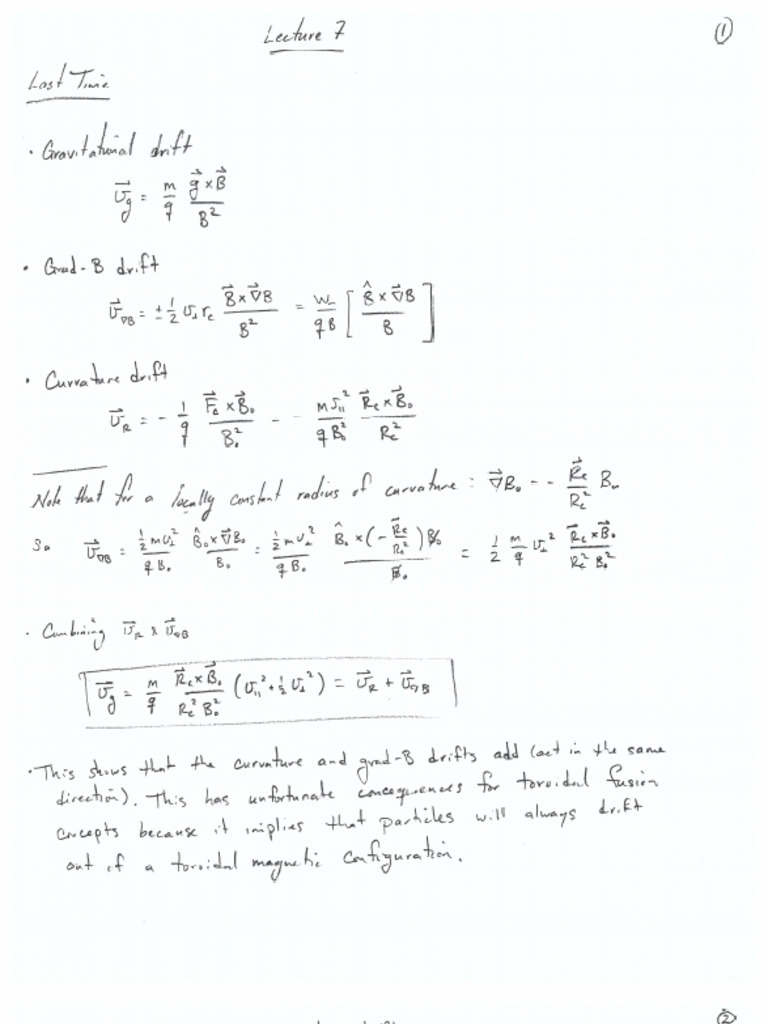 Lecture 7
①
Last Time
• Gravitational drift
v⃗_g = m/q (g⃗ × B⃗)/B²
• Grad-B drift
v⃗_∇B = ± 1/2 v_⊥ r_c (B⃗ × ∇⃗B)/B² = W_⊥/(qB) [ (B̂ × ∇⃗B)/B ]
• Curvature drift
v⃗_R = - 1/q (F⃗_c × B⃗₀)/B₀² - - (m v_∥²)/(q B₀²) (R⃗_c × B⃗₀)/R_c²
Note that for a locally constant radius of curvature : ∇⃗B₀ - - R⃗_c/R_c² B₀
So v⃗_∇B = (1/2 m v_⊥²)/(q B₀) (B̂₀ × ∇⃗B₀)/B₀ = (1/2 m v_⊥²)/(q B₀) (B̂₀ × (- R⃗_c/R_c²) B₀)/B₀ = 1/2 m/q v_⊥² (R⃗_c × B⃗₀)/(R_c² B₀²)
• Combining v⃗_R & v⃗_∇B
v⃗_g = m/q (R⃗_c × B⃗₀)/(R_c² B₀²) (v_∥² + 1/2 v_⊥²) = v⃗_R + v⃗_∇B
• This shows that the curvature and grad-B drifts add (act in the same
direction). This has unfortunate consequences for toroidal fusion
concepts because it implies that particles will always drift
out of a toroidal magnetic configuration.
②